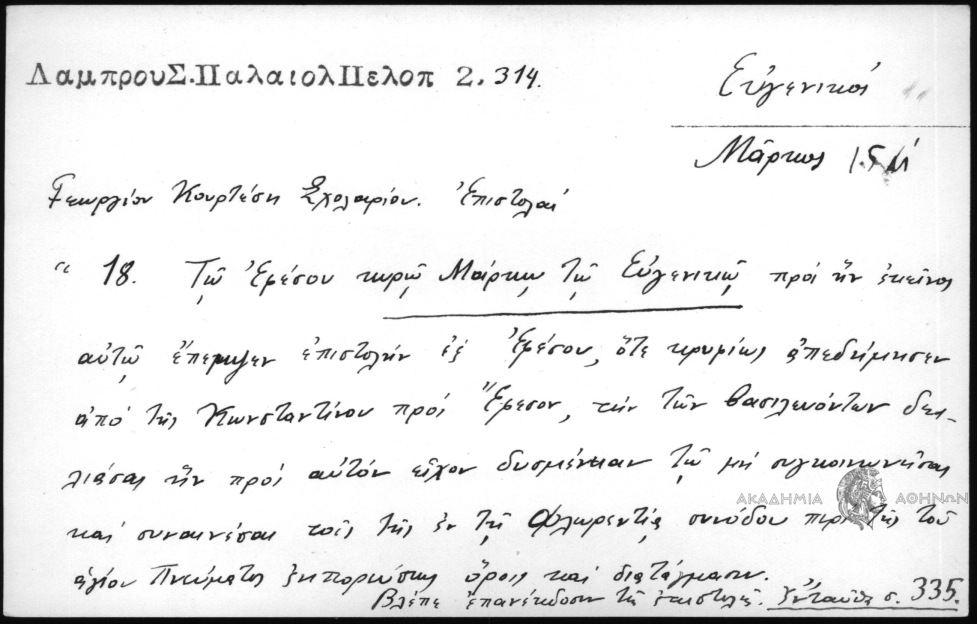 ΛαμπρουΣ.ΠαλαιολΠελοπ 2. 314.
Εὐγενικός
Μάρκος
Γεωργίου Κουρτέση Σχολαρίου. Ἐπιστολαί
“ 18. Τῷ Ἐφέσου κυρῷ Μάρκῳ τῷ Εὐγενικῷ πρὸς ἣν ἐκεῖνος
αὐτῷ ἔπεμψεν ἐπιστολὴν ἐξ Ἐφέσου, ὅτε κρυφίως ἀπεδήμησεν
ἀπὸ τῆς Κωνσταντίνου πρὸς Ἔφεσον, τὴν τῶν βασιλευόντων δει-
λιάσας ἣν πρὸς αὐτὸν εἶχον δυσμένειαν τῷ μὴ συγκοινωνῆσαι
ΑΚΑΔΗΜΙΑ ΑΘΗΝΩΝ
καὶ συναινέσαι τοῖς τῆς ἐν τῇ Φλωρεντίᾳ συνόδου περὶ τῆς τοῦ
ἁγίου Πνεύματος ἐκπορεύσεως ὅροις καὶ διατάγμασιν.
Βλέπε ἐπανέκδοσιν τῆς ἐπιστολῆς. Ἐνταῦθα σ. 335.